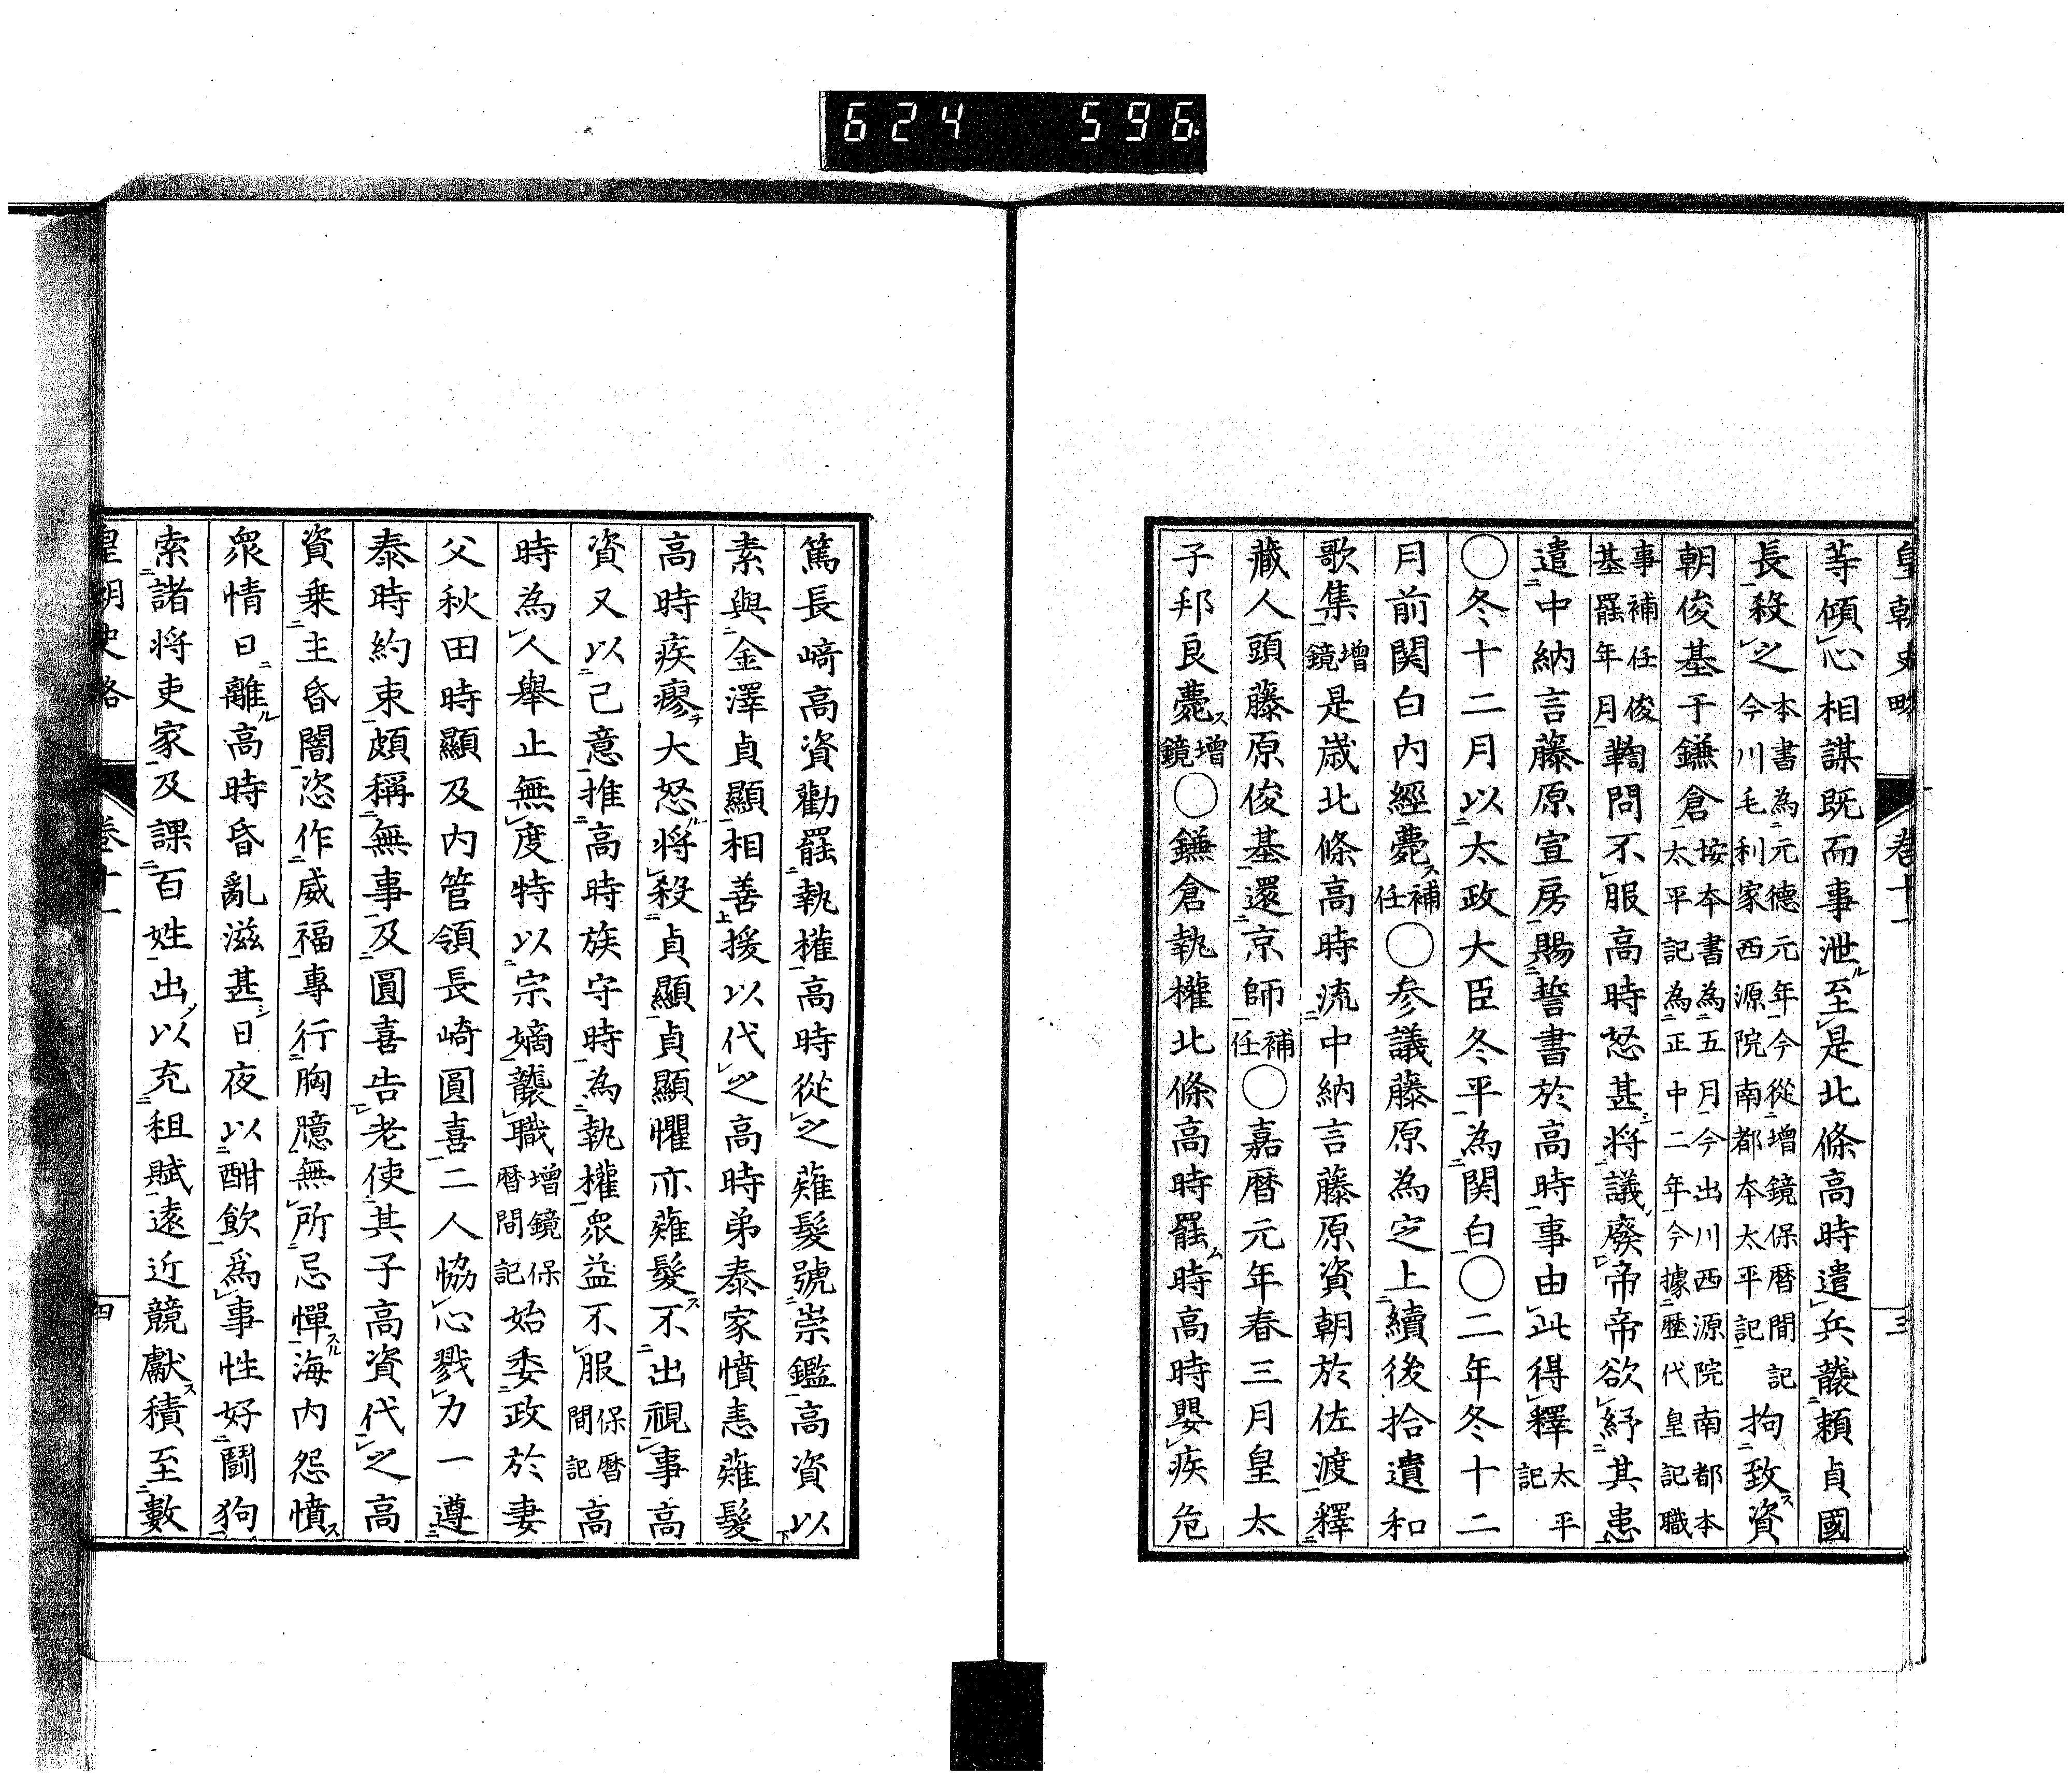 624 596
皇朝史略 卷十一 三
等傾心相謀既而事泄至是北條高時遣兵襲頼貞國
長殺之本書為元德元年今從增鏡保暦間記今川毛利家西源院南都本太平記拘致資
朝俊基于鎌倉按本書為五月今出川西源院南都本太平記為正中二年今據歷代皇記職
事補任俊基罷年月鞫問不服高時怒甚將議廢帝帝欲紓其患
遣中納言藤原宣房賜誓書於高時事由此得釋太平記
○冬十二月以太政大臣冬平為関白○二年冬十二
月前関白内經薨補任○参議藤原為定上續後拾遺和
歌集增鏡是歳北條高時流中納言藤原資朝於佐渡釋
藏人頭藤原俊基還京師補任○嘉暦元年春三月皇太
子邦良薨增鏡○鎌倉執權北條高時罷時高時嬰疾危
篤長﨑高資勸罷執權高時從之薙髮號崇鑑高資以
素與金澤貞顯相善援以代之高時弟泰家憤恚薙髮
高時疾瘳大怒將殺貞顯貞顯懼亦薙髮不出視事高
資又以己意推高時族守時為執權衆益不服保暦間記高
時為人舉止無度特以宗嫡襲職增鏡保暦間記始委政於妻
父秋田時顯及内管領長崎圓喜二人恊心戮力一遵
泰時約束頗稱無事及圓喜告老使其子高資代之高
資乗主昏闇恣作威福專行胸臆無所忌憚海内怨憤
衆情日離高時昏亂滋甚日夜以酣飲爲事性好鬪狗
索諸将吏家及課百姓出以充租賦遠近競獻積至數
皇朝史略 卷十一 四